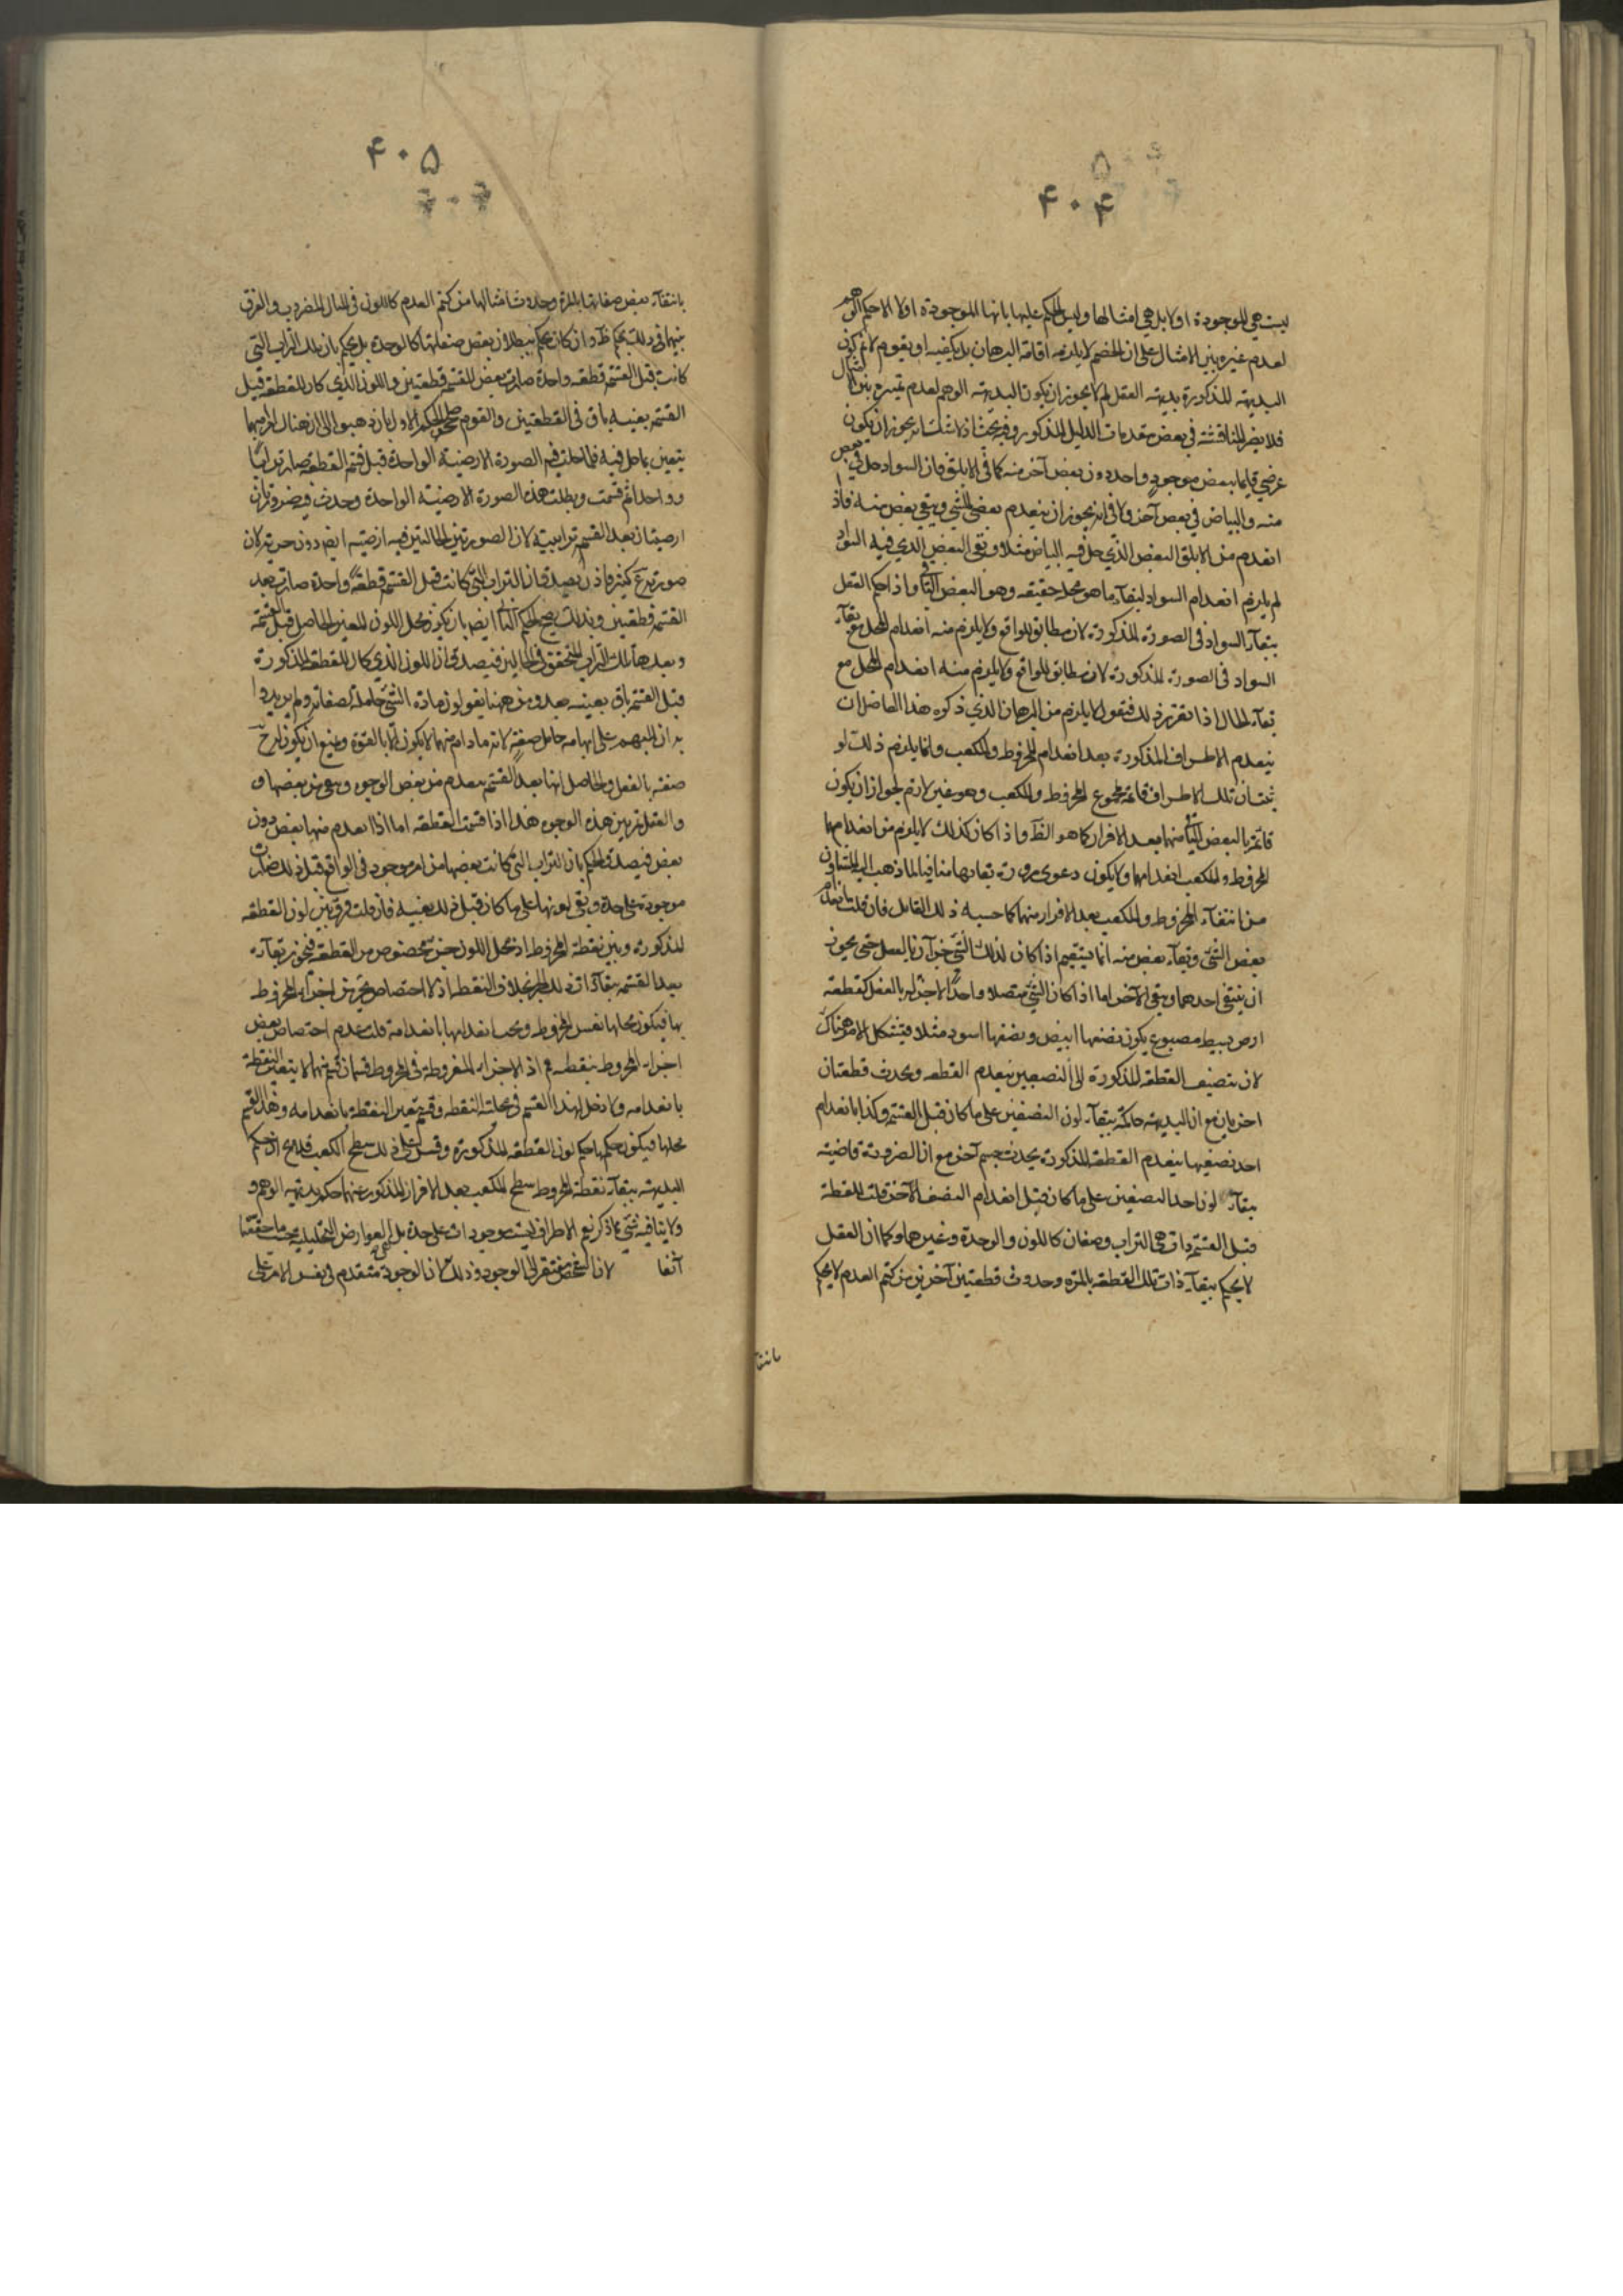 ۴۰۴
ليست هي الموجودة اولا بل هي امثالها وليس الحكم عليها بانها الموجودة اولا الا حكم الوهم
لعدم تميزه بين الامثال على ان الخصم لا يلزمه اقامة البرهان بل يكفيه ان يقول لم لا يكون
البديهة المذكورة بديهة العقل لم لا يجوز ان يكون البديهة الوهم لعدم تميزه بين الامثال
فلا يضر المناقشة في بعض مقدمات الدليل المذكور وفيه بحث اذ لا شك انه يجوز ان يكون
عرضي قايما ببعض موجود واحد دون بعض آخر منه كما في الابلق فان السواد حل في بعض
منه والبياض في بعض آخر ولا في انه يجوز ان ينعدم بعض الشي ويبقى بعض منه فاذا
انعدم من الابلق البعض الذي حل فيه البياض مثلا وبقى البعض الذي فيه السواد
لم يلزم انعدام السواد لبقآء ما هو محله حقيقة وهو البعض الباقي واذا حكم العقل
ببقآء السواد في الصورة المذكورة لان مطابق للواقع ولا يلزم منه انعدام المحل مع بقآء
السواد في الصورة المذكورة لان مطابق للواقع ولا يلزم منه انعدام المحل مع
بقآء الحال اذا تقرر ذلك فنقول لا يلزم من البرهان الذي ذكره هذا الفاضل ان
ينعدم الاطراف المذكورة بعد انعدام المخروط والمكعب وانما يلزم ذلك لو
ثبت ان تلك الاطراف قائمة بمجموع المخروط والمكعب وهو غير لازم لجواز ان يكون
قائمة بالبعض الباقي منهما بعد الافراز كما هو الظ واذا كان كذلك لا يلزم من انعدام
المخروط والمكعب انعدامها ولا يكون دعوى ضرورة بقائها منافيا لما ذهب اليه المشاؤن
من انتفآء المخروط والمكعب بعد الافراز منهما كما حسبه ذلك القايل فان قلت انعدام
بعض الشي وبقآء بعض منه انما يستقيم اذا كان لذلك الشي جزآن بالفعل حتى يجوز
ان ينتفي احدهما ويبقى الآخر اما اذا كان الشي متصلا واحدا لا جزء له بالفعل كقطعة
ارض بسيط مصبوغ يكون نصفها ابيض ونصفها اسود مثلا فيشكل الامر هناك
لان بتنصيف القطعة المذكورة الى النصفين ينعدم القطعه ويحدث قطعتان
اخريان مع ان البديهة حاكمة ببقآء لون النصفين على ما كان قبل القسمة وكذا بانعدام
احد نصفيها ينعدم القطعة المذكورة يحدث جسم آخر مع ان الضرورة قاضية
ببقآء لون احد النصفين على ما كان قبل انعدام النصف الآخر قلت للقطعة
قبل القسمة ذات هي التراب وصفات كاللون والوحدة وغيرهما وكما ان العقل
لا يحكم ببقآء ذات تلك القطعه بالمرة وحدوث قطعتين آخرتين من كتم العدم لا يحكم
بانتفا
۴۰۵
بانتفآء بعض صفاتها بالمرة وحدوث امثالها من كتم العدم كاللون في المثال المضروب والفرق
بينهما في ذلك تحكم ظ وان كان يحكم ببطلان بعض صفاتها كالوحدة بل يحكم بان تلك التراب التي
كانت قبل القسمة قطعة واحدة صارت بعض القسمة قطعتين واللون الذي كان للقطعة قبيل
القسمة بعينه باق في القطعتين والقوم صححوا الحكم الاول بان ذهبوا الى ان هناك امرا مبهما
يتعين بما حل فيه فلما حلت فيه الصورة الارضية الواحدة قبل قسمة القطعة صارت ترابا
وواحدا ثم قسمت وبطلت هذه الصورة الارضية الواحدة وحدث فيه صورتان
ارضيتان بعد القسمة ترابيته لان الصورتين الحالتين فيه ارضيته ايضا دون حديه لان
صورته غير كثير فاذن يصدق ان التراب التي كانت قبل القسمة قطعة واحدة صارت بعد
القسمة قطعتين وبذلك صح الحكم الثاني ايضا بان يكون محل اللون المعين الحاصل قبل القسمة
وبعدها تلك التراب المتحقق في الحالين فيصدق ان اللون الذي كان للقطعة المذكورة
قبل القسمة باق بعينه بعد ومن ههنا يقولون مادة الشي حاملة لصفاته ولم يريدوا
به ان المبهم على ابهامه حامل صفته لانه مادام مبهما لا يكون الا بالقوة ويمنع ان يكون له ح
صفة بالفعل والحاصل انها بعد القسمة ينعدم من بعض الوجوه ويبقى من بعضها و
والعقل تمييز هذه الوجوه هذا اذا قسمت القطعة اما اذا انعدم منها بعض دون
بعض فيصدق الحكم بان التراب التي كانت بعضها من امر موجود في الواقع قبل ذلك صارت
موجودة على حدة وبقى لونها على ما كان قبل ذلك بعينه فان قلت فرق بين لون القطعة
المذكورة وبين نقطة المخروط اذ محل اللون جزء مخصوص من القطعة فيجوز بقآءه
بعد القسمة ببقآء ذات ذلك الجزء بخلاف النقطة اذ لا اختصاص بجزء من اجزاء المخروط
بها فيكون محلها نفس المخروط ويجب انعدامها بانعدامه قلت عدم اختصاص بعض
اجزاء المخروط بنقطة مم اذ الاجزاء المفروضة في المخروط قسمان قسم منها لا ينتفى النقطة
بانعدامه ولا دخل لهذا القسم في محلية النقطة وقسم يتغير النقطة بانعدامه وهذا القسم
محلها فيكون حكمها حكم لون القطعة المذكورة وقس على ذلك سطح المكعب فلا يصح ان حكم
البديهة ببقآء نقطة المخروط سطح المكعب بعد الافراز المذكور عنهما حكم بديهة الوهم و
ولا ينافيه شي مما ذكر نعم الاطراف ليست موجودات على حدة بل هي من العوارض التحليلية بحسب ما حققنا
آنفا لان التشخص مفتقر الى الوجود وذلك لان الوجود متقدم في نفس الامر على